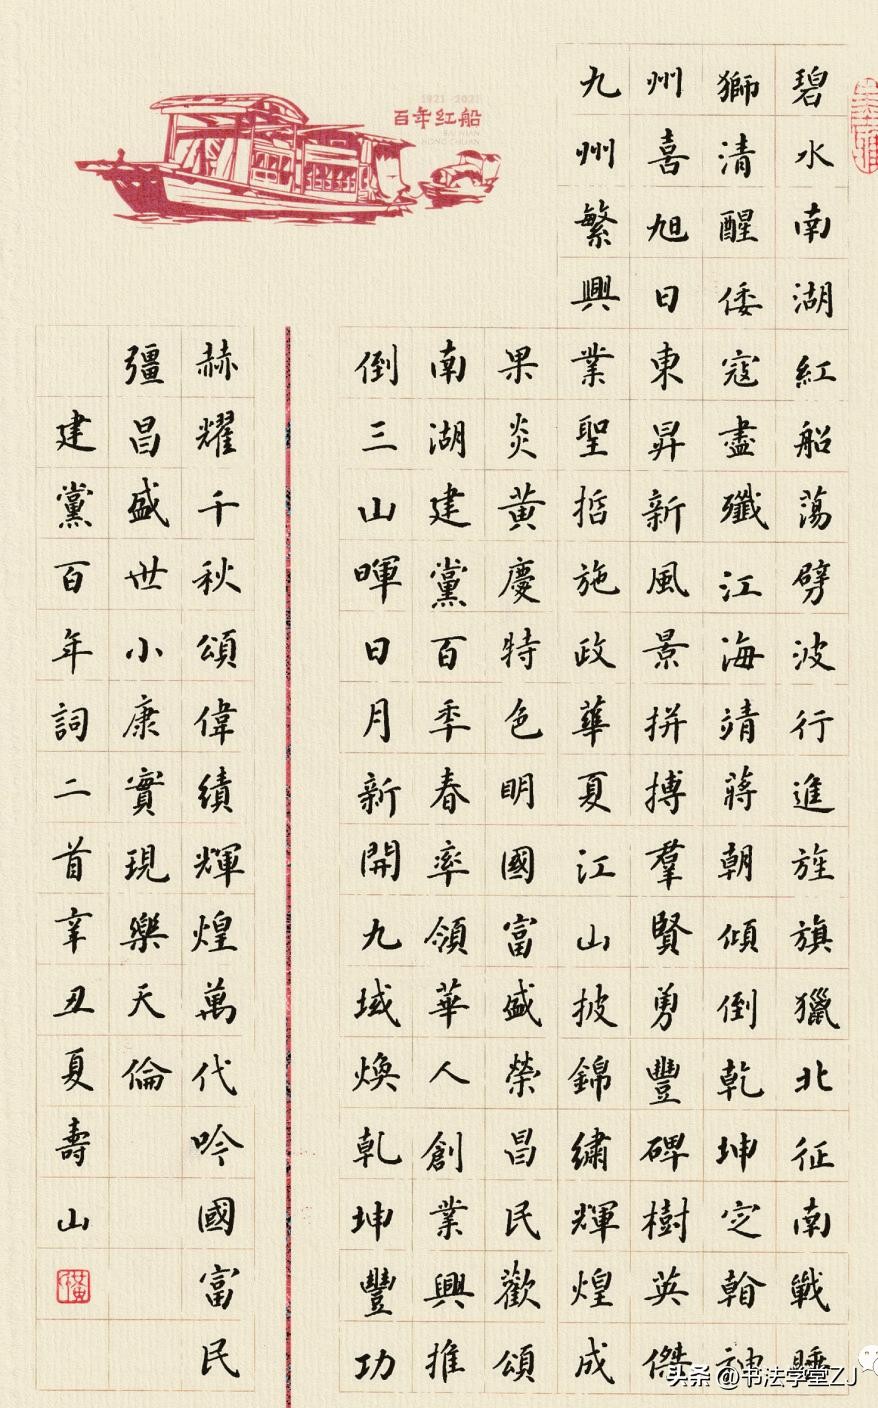 碧水南湖紅船蕩劈波行進旌旗獵北征南戰睡
獅清醒倭寇盡殲江海靖蔣朝傾倒乾坤定翰神
州喜旭日東昇新風景拼搏羣賢勇豐碑樹英傑
九州繁興業聖哲施政華夏江山披錦繡輝煌成
1921-2021
百年红船
BAI NIAN
HONG CHUAN
果炎黃慶特色明國富盛榮昌民歡頌
南湖建黨百秊春率領華人創業興推
倒三山暉日月新開九域煥乾坤豐功
赫耀千秋頌偉績輝煌萬代吟國富民
彊昌盛世小康實現樂天倫
建黨百年詞二首辛丑夏壽山
头条 @书法学堂ZJ